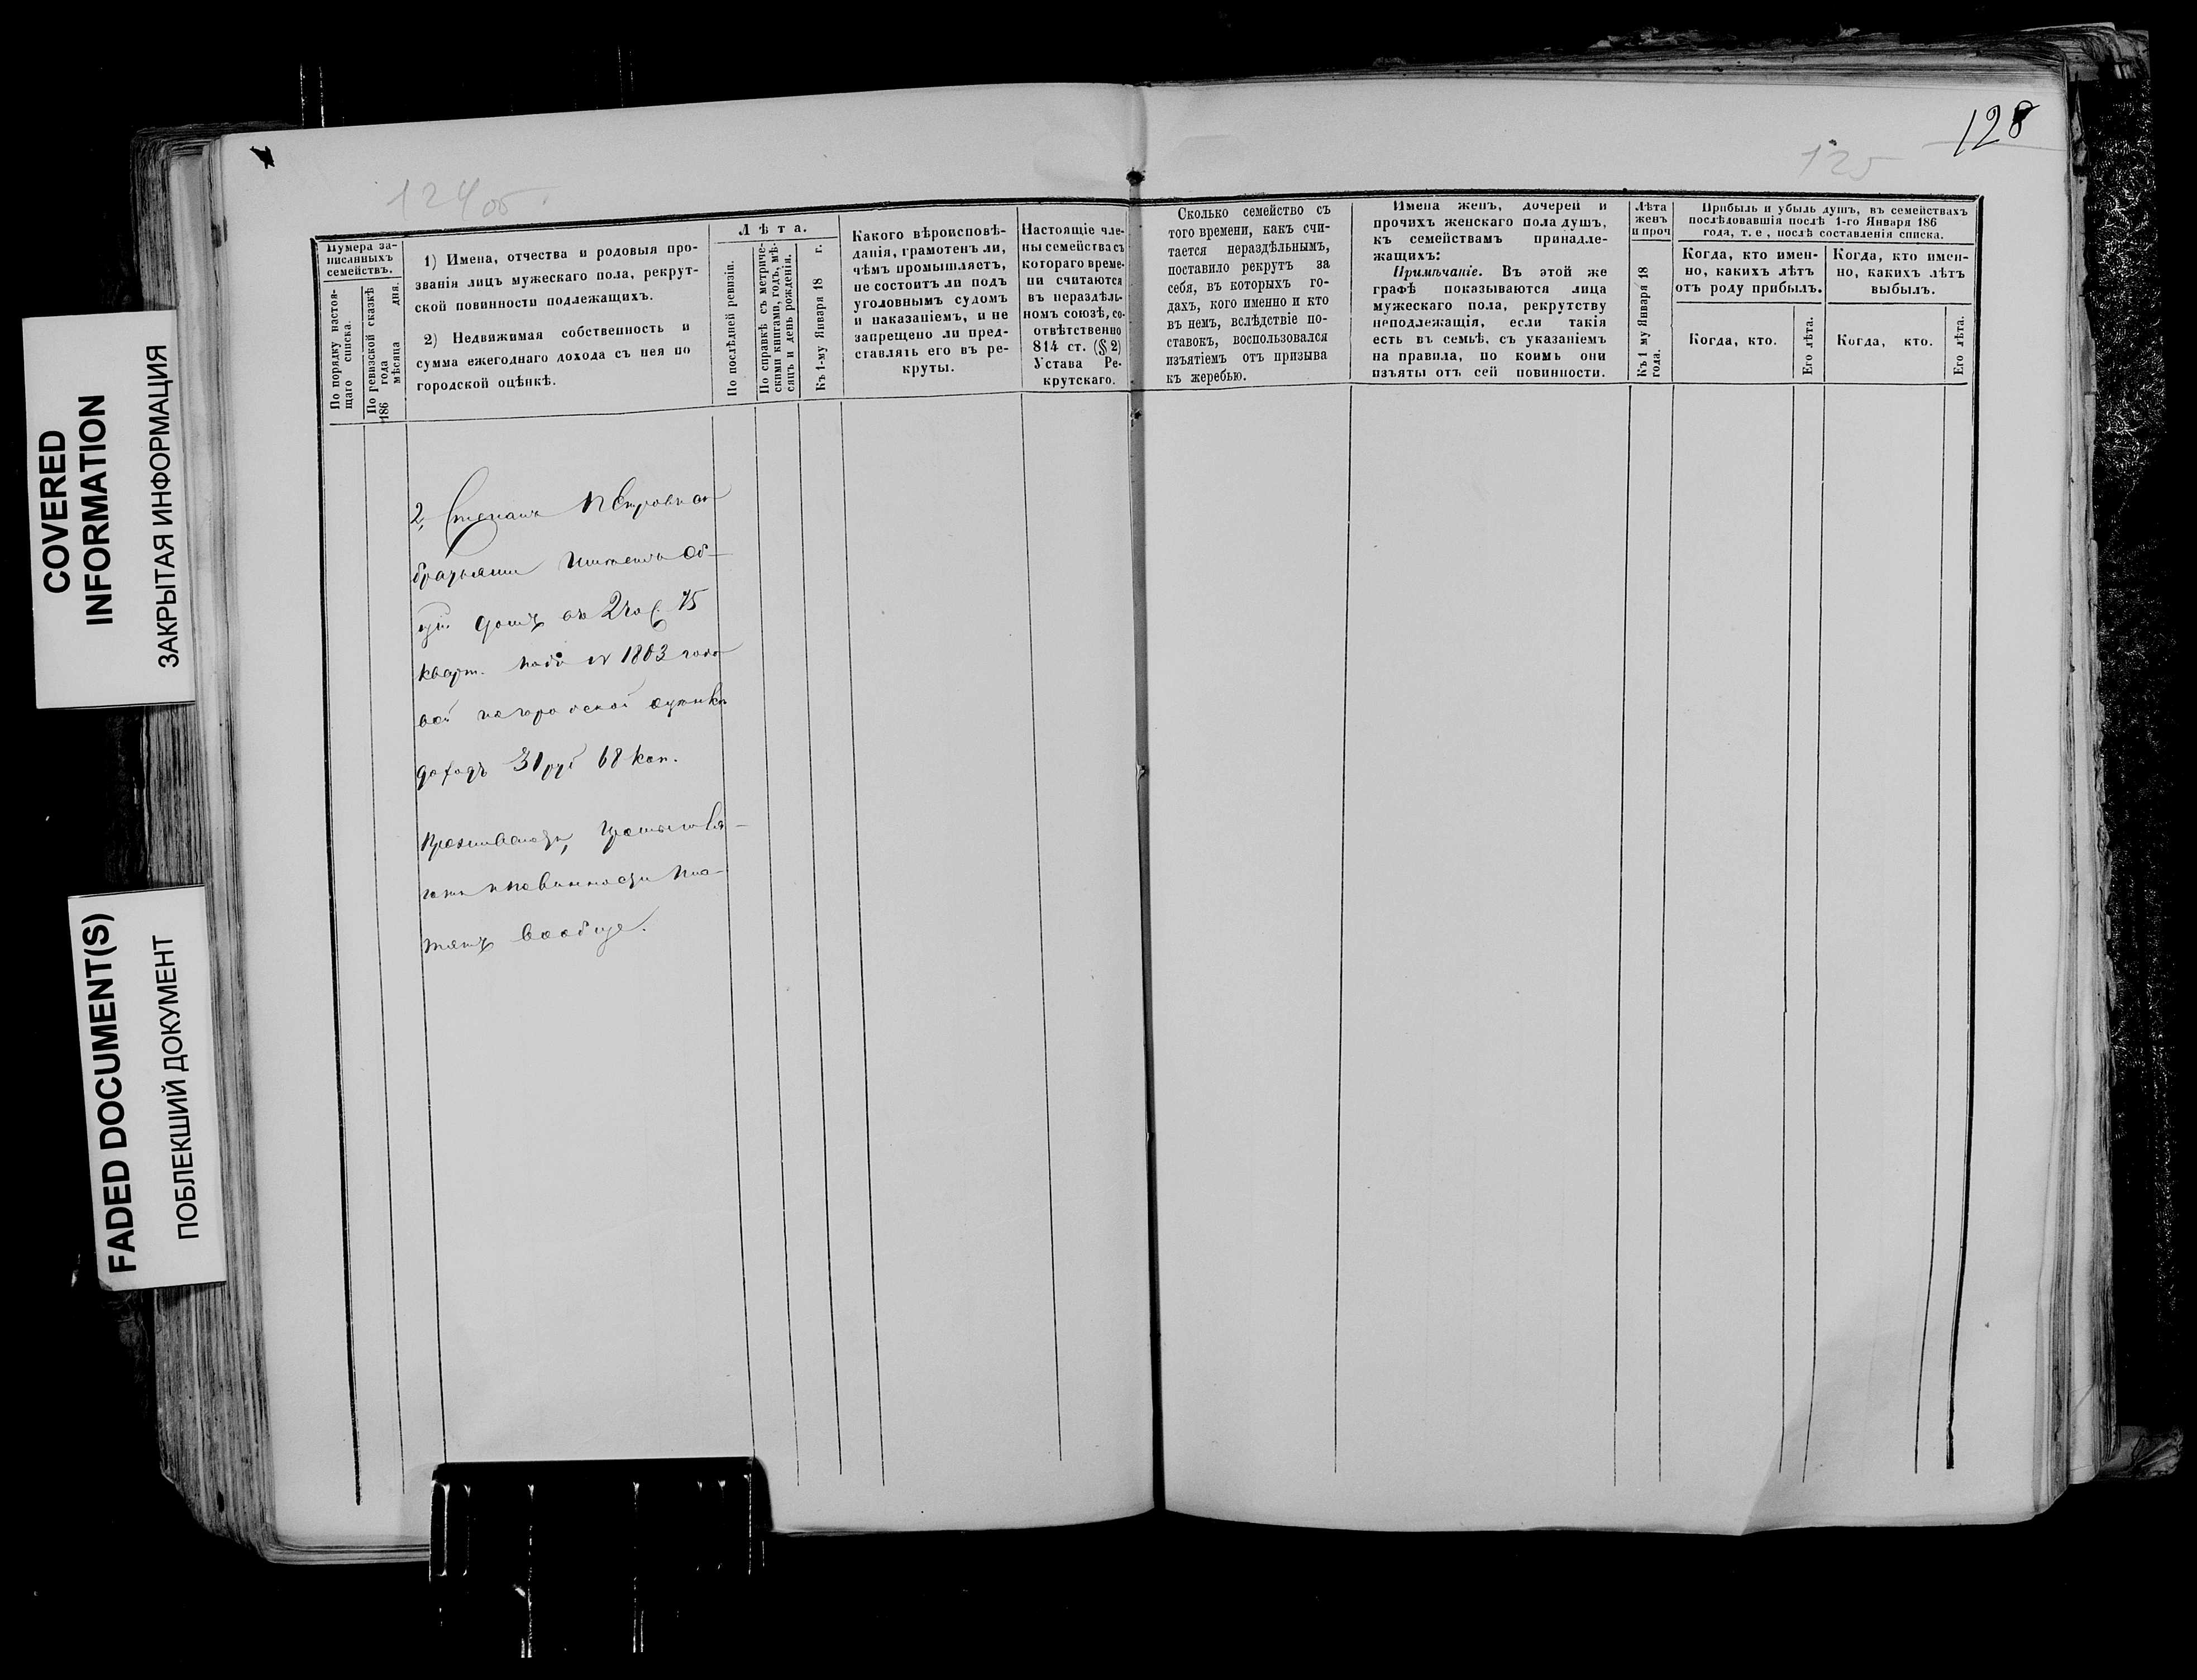 COVERED
INFORMATION
ЗАКРЫТАЯ ИНФОРМАЦИЯ
FADED DOCUMENT(S)
ПОБЛЕКШИЙ ДОКУМЕНТ
124 об.
Нумера за-
писанныхъ
семействъ.
По порядку настоя-
щаго списка.
По ревизской сказкѣ
186 года мѣсяца дня.
1) Имена, отчества и родовыя про-
званія лицъ мужескаго пола, рекрут-
ской повинности подлежащихъ.
2) Недвижимая собственность и
сумма ежегоднаго дохода съ нея по
городской оцѣнкѣ.
Лѣта.
По послѣдней ревизіи.
По справкѣ съ метриче-
скими книгами, годъ, мѣ-
сяцъ и день рожденія.
Къ 1-му Января 18 г.
Какого вѣроисповѣ-
данія, грамотенъ ли,
чѣмъ промышляетъ,
не состоитъ ли подъ
уголовнымъ судомъ
и наказаніемъ, и не
запрещено ли пред-
ставлять его въ ре-
круты.
Настоящіе чле-
ны семейства съ
котораго време-
ни считаются
въ нераздѣль-
номъ союзѣ, со-
отвѣтственно
814 ст. (§ 2)
Устава Ре-
крутскаго.
2, Степанъ Петровъ съ
братьями имѣютъ об-
щій домъ во 2й ч. 75
кварт. подъ № 1803
городской оцѣнкѣ
доходъ 31 руб 68 коп.
Проживаютъ,
повинности пла-
тятъ вообще.
128
125
Сколько семейство съ
того времени, какъ счи-
тается нераздѣльнымъ,
поставило рекрутъ за
себя, въ которыхъ го-
дахъ, кого именно и кто
въ немъ, вслѣдствіе по-
ставокъ, воспользовался
изъятіемъ отъ призыва
къ жеребью.
Имена женъ, дочерей и
прочихъ женскаго пола душъ,
къ семействамъ принадле-
жащихъ:
Примѣчаніе. Въ этой же
графѣ показываются лица
мужескаго пола, рекрутству
неподлежащія, если такія
есть въ семьѣ, съ указаніемъ
на правила, по коимъ они
изъяты отъ сей повинности.
Лѣта
женъ
и проч
Къ 1 му Января 18
года.
Прибыль и убыль душъ, въ семействахъ
послѣдовавшія послѣ 1-го Января 186
года, т. е, послѣ составленія списка.
Когда, кто имен-
но, какихъ лѣтъ
отъ роду прибылъ.
Когда, кто.
Его лѣта.
Когда, кто имен-
но, какихъ лѣтъ
выбылъ.
Когда, кто.
Его лѣта.